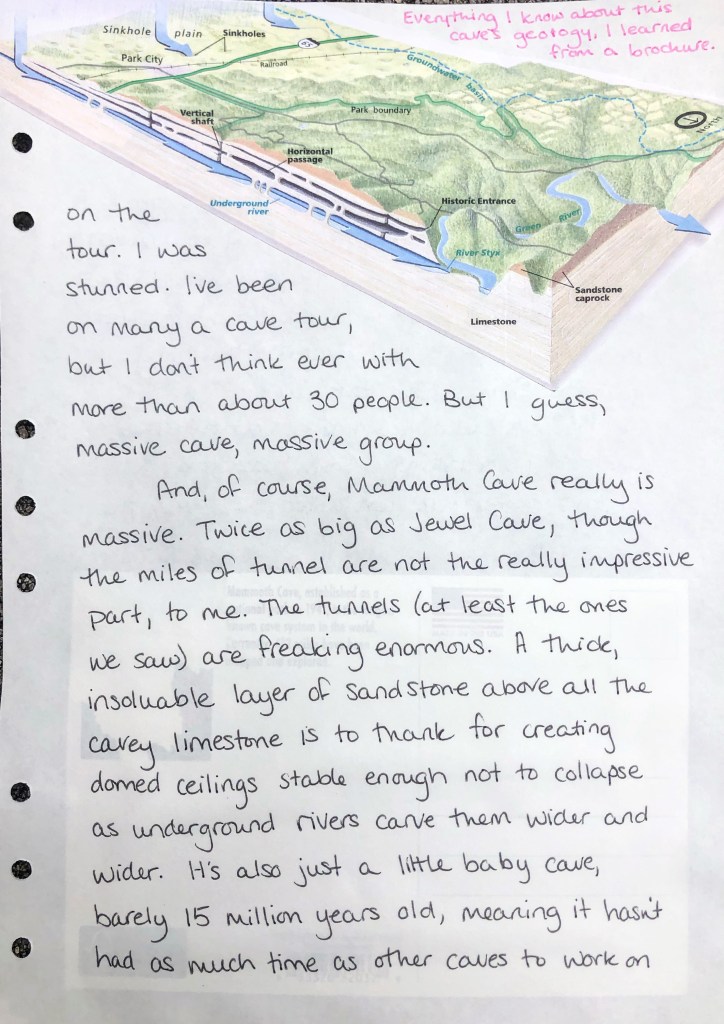 Everything I know about this
cave's geology, I learned
from a brochure.
Sinkhole plain
Sinkholes
Park City
Railroad
Groundwater basin
Park boundary
NORTH
Vertical
shaft
Horizontal
passage
Underground
river
Historic Entrance
Green River
River Styx
Sandstone
caprock
Limestone
on the
tour. I was
stunned. I've been
on many a cave tour,
but I don't think ever with
more than about 30 people. But I guess,
massive cave, massive group.
And, of course, Mammoth Cave really is
massive. Twice as big as Jewel Cave, though
the miles of tunnel are not the really impressive
part, to me. The tunnels (at least the ones
we saw) are freaking enormous. A thick,
insoluable layer of sandstone above all the
cavey limestone is to thank for creating
domed ceilings stable enough not to collapse
as underground rivers carve them wider and
wider. It's also just a little baby cave,
barely 15 million years old, meaning it hasn't
had as much time as other caves to work on